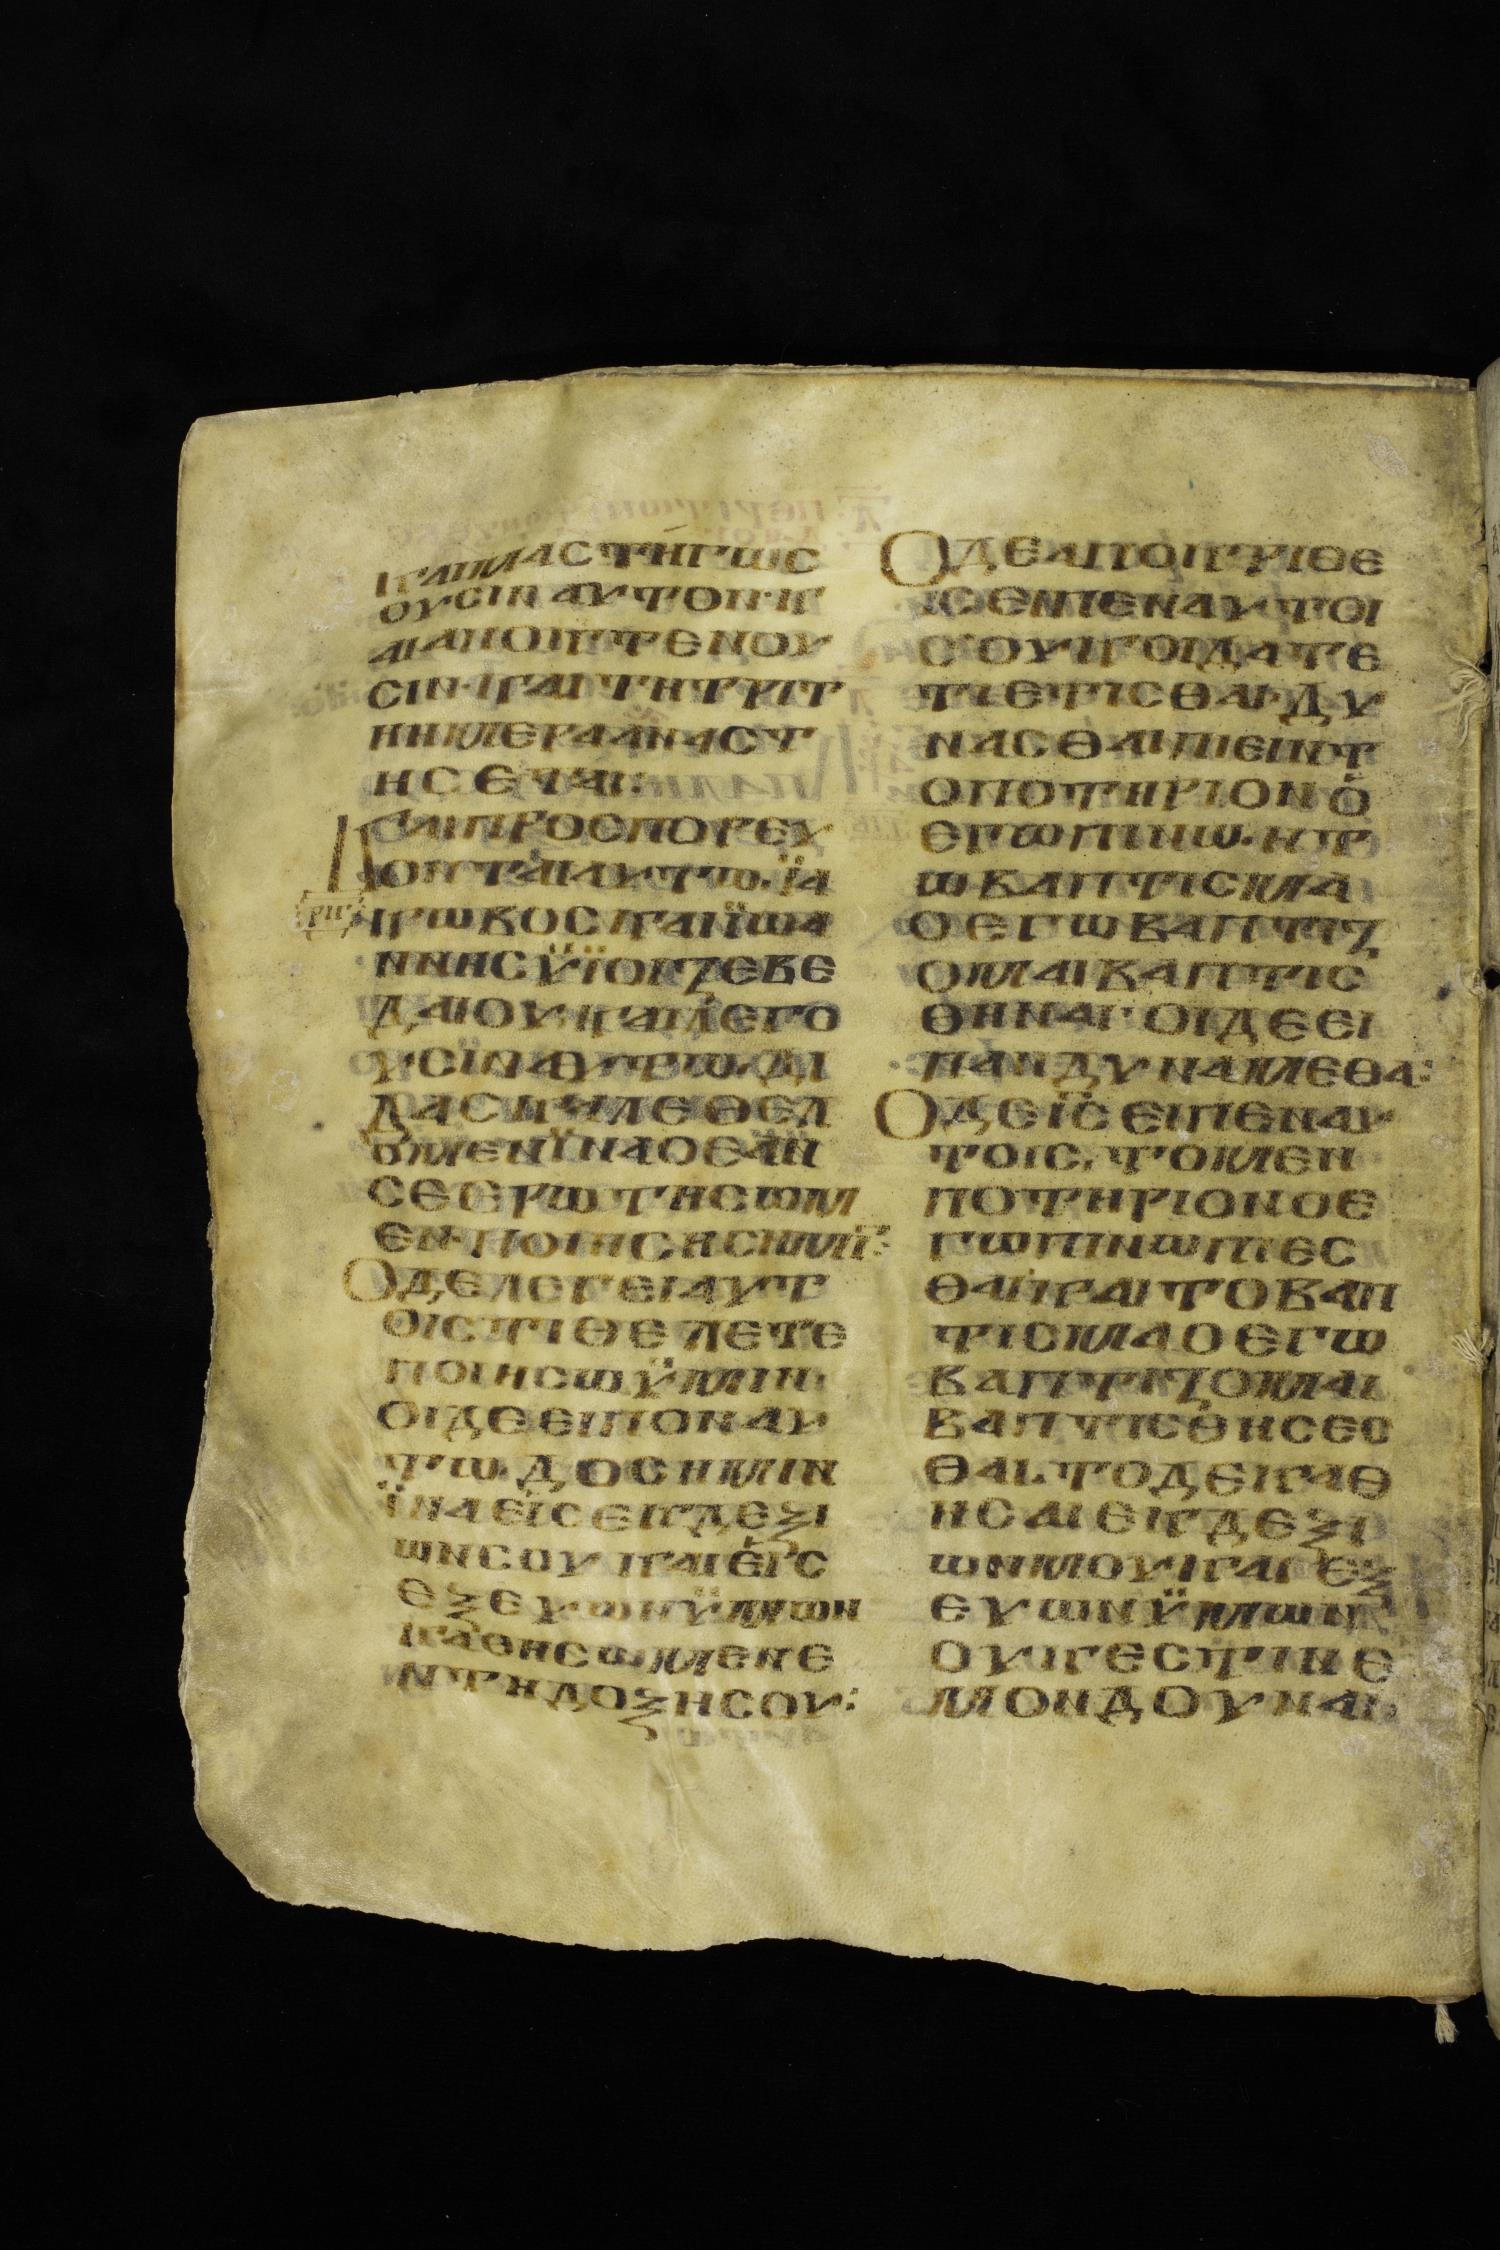 ΚΑΙΜΑΣΤΗΓΩΣ
ΟΥΣΙΝΑΥΤΟΝ·Κ
ΑΙΑΠΟΚΤΕΝΟΥ
ΣΙΝ·ΚΑΙΤΗΤΡΙΤ
ΗΗΜΕΡΑΑΝΑΣΤ
ΗΣΕΤΑΙ:
ΚΑΙΠΡΟΣΠΟΡΕΥ
ΟΝΤΑΙΑΥΤΩ·ΪΑ
ΚΩΒΟΣΚΑΙΪΩΑ
ΝΝΗΣΫΪΟΙΖΕΒΕ
ΔΑΙΟΥ·ΚΑΙΛΕΓΟ
ΥΣΙΝΑΥΤΩ·ΔΙ
ΔΑΣΚΑΛΕΘΕΛ
ΟΜΕΝΪΝΑΟΕΑΝ
ΣΕΕΡΩΤΗΣΩΜ
ΕΝ·ΠΟΙΗΣΗΣΗΜΙΝ:
ΟΔΕΛΕΓΕΙΑΥΤ
ΟΙΣΤΙΘΕΛΕΤΕ
ΠΟΙΗΣΩΫΜΙΝ·
ΟΙΔΕΕΙΠΟΝΑΥ
ΤΩ·ΔΟΣΗΜΙΝ
ΪΝΑΕΙΣΕΚΔΕΞΙ
ΩΝΣΟΥΚΑΙΕΙΣ
ΕΞΕΥΩΝΫΜΩΝ
ΚΑΘΗΣΩΜΕΝΕ
ΝΤΗΔΟΞΗΣΟΥ:
ΟΔΕΑΠΟΚΡΙΘΕ
ΙΣΕΙΠΕΝΑΥΤΟΙ
ΣΟΥΚΟΙΔΑΤΕ
ΤΙΕΤΙΣΘΑΙ·ΔΥ
ΝΑΣΘΑΙΠΙΕΙΝΤ
ΟΠΟΤΗΡΙΟΝΟ
ΕΓΩΠΙΝΩ·ΗΤ
ΩΒΑΠΤΙΣΜΑ
ΟΕΓΩΒΑΠΤΙΖ
ΟΜΑΙΒΑΠΤΙΣ
ΘΗΝΑΙ·ΟΙΔΕΕΙ
ΠΑΝΔΥΝΑΜΕΘΑ:
ΟΔΕΪΣΕΙΠΕΝΑΥ
ΤΟΙΣ·ΤΟΜΕΝ
ΠΟΤΗΡΙΟΝΟΕ
ΓΩΠΙΝΩΠΙΕΣ
ΘΑΙΚΑΙΤΟΒΑΠ
ΤΙΣΜΑΟΕΓΩ
ΒΑΠΤΙΖΟΜΑΙ
ΒΑΠΤΙΣΘΗΣΕΣ
ΘΑΙ·ΤΟΔΕΚΑΘ
ΗΣΑΙΕΚΔΕΞΙ
ΩΝΜΟΥΚΑΙΕΞ
ΕΥΩΝΫΜΩΝ
ΟΥΚΕΣΤΙΝΕ
ΜΟΝΔΟΥΝΑΙ